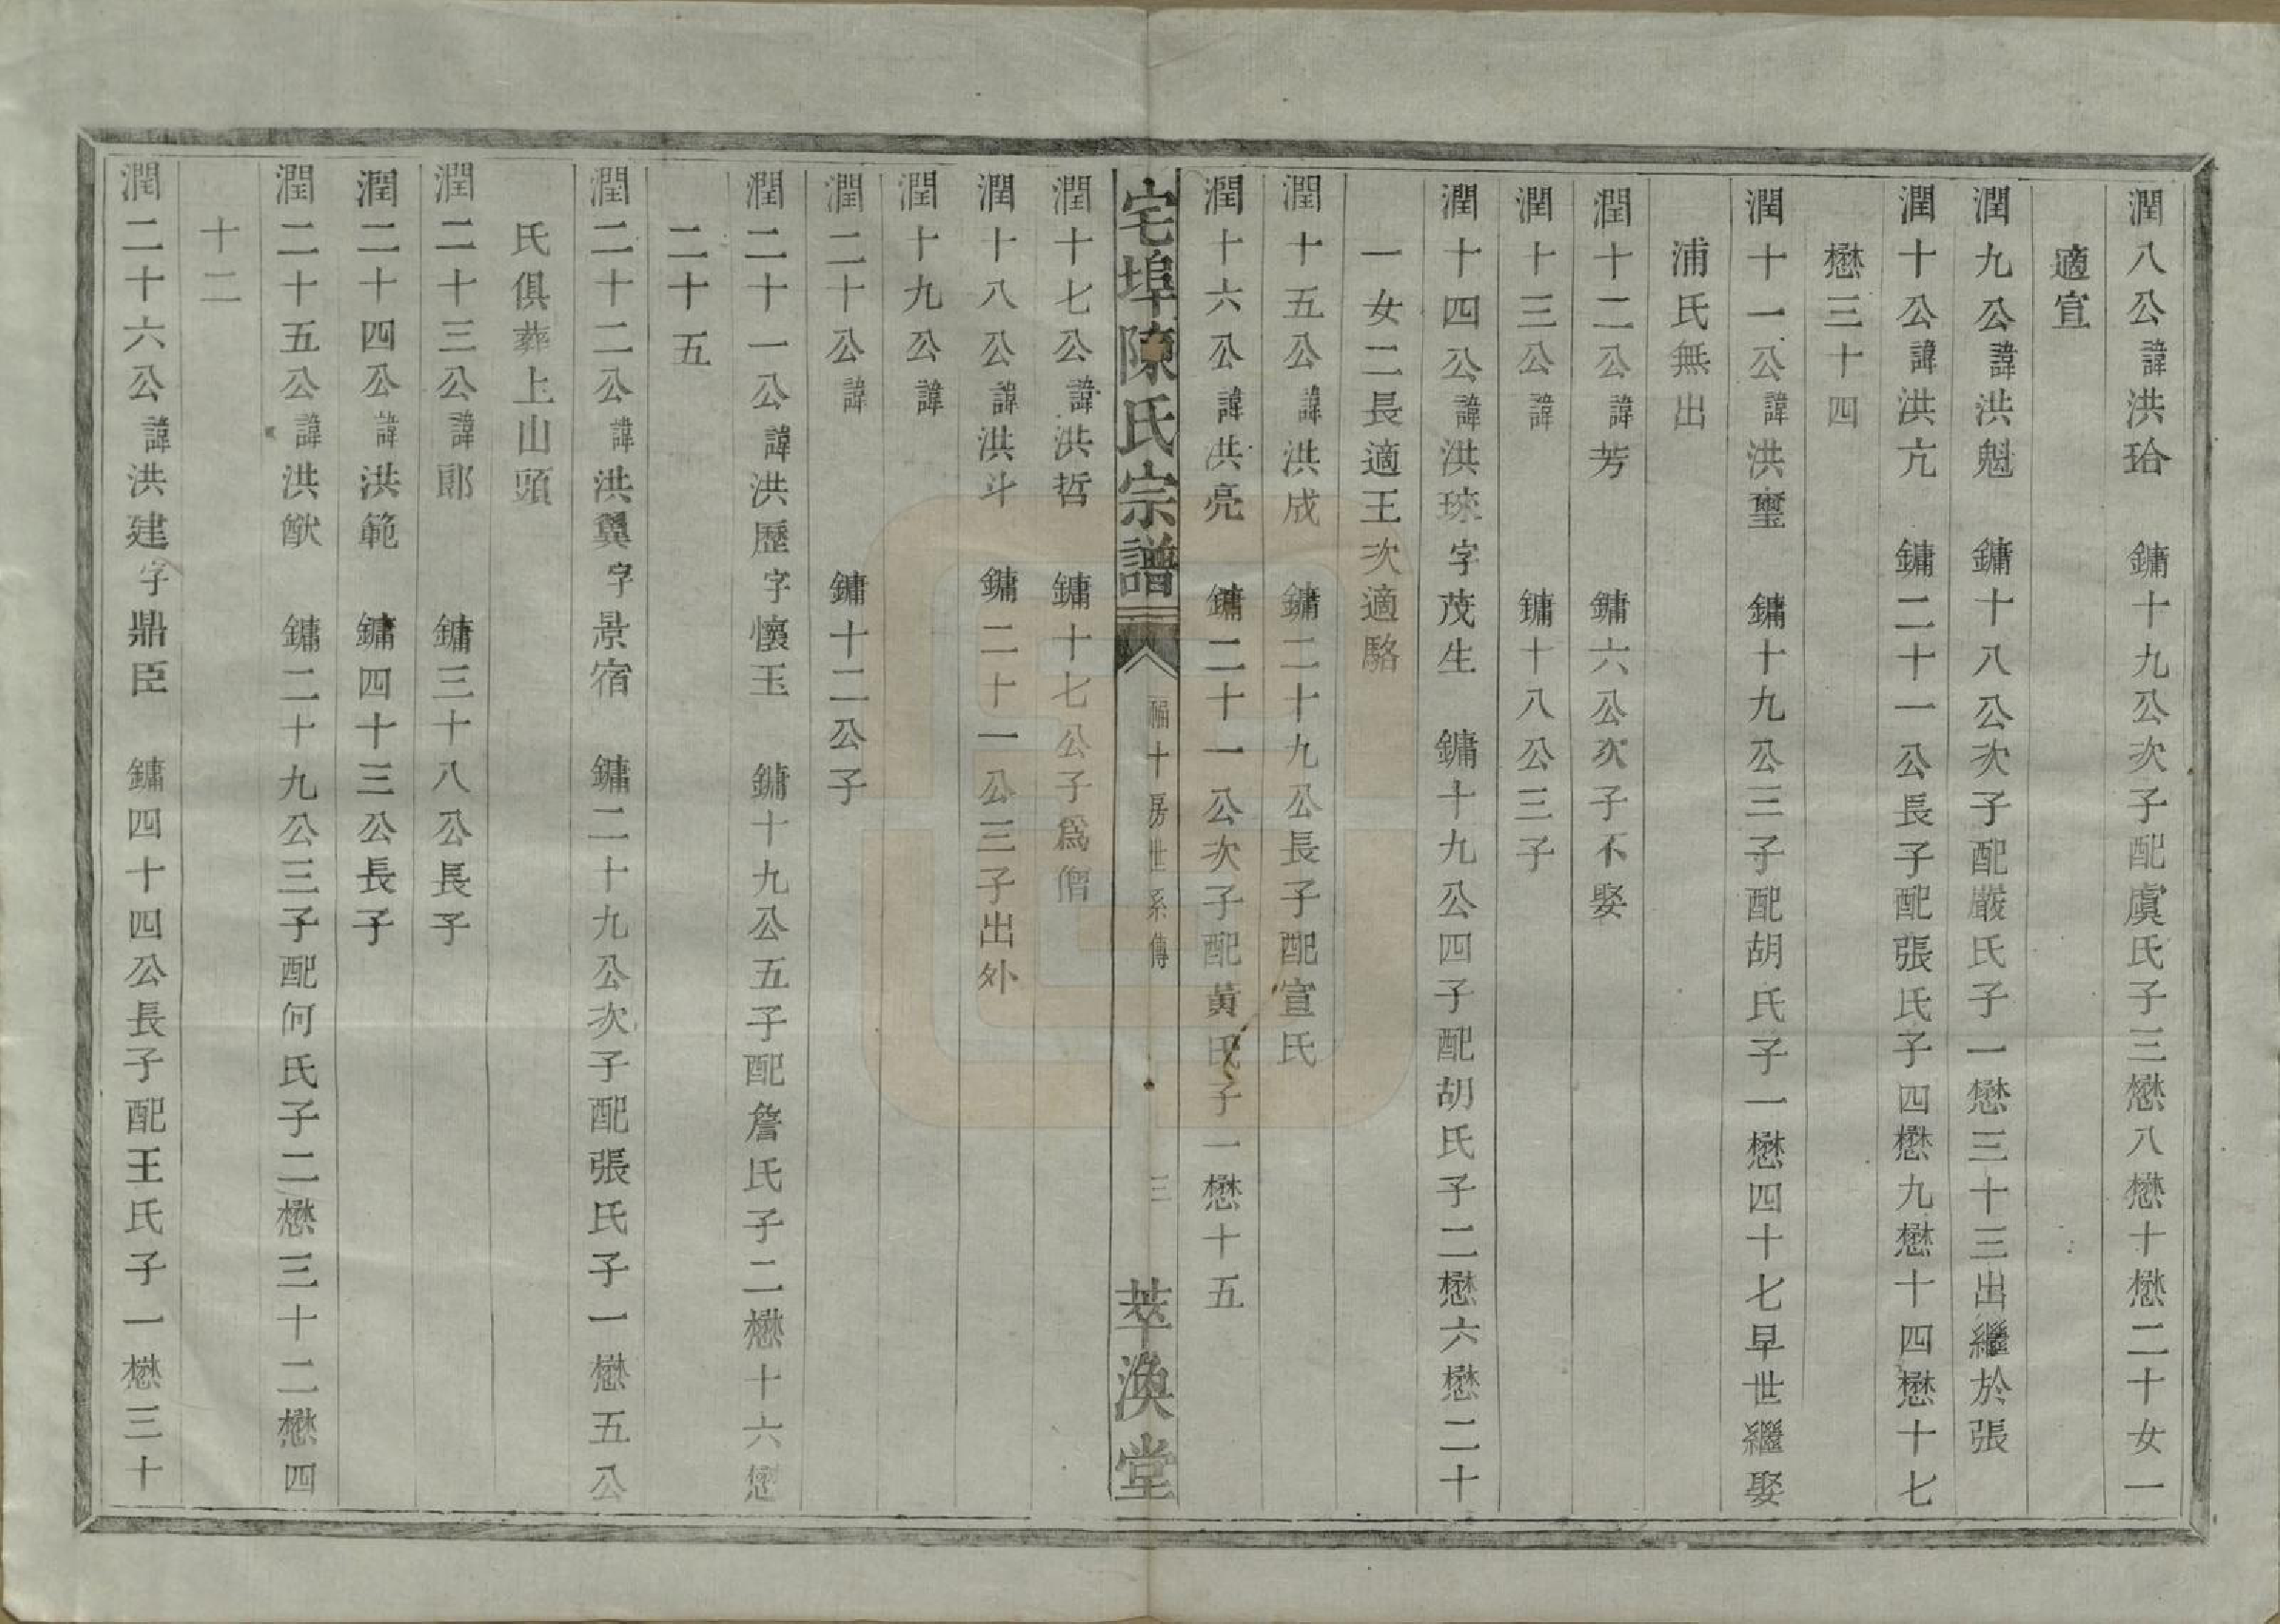 潤八公諱洪珨　鏞十九公次子配虞氏子三懋八懋十懋二十女一
適宣
潤九公諱洪魁　鏞十八公次子配嚴氏子一懋三十三出繼於張
潤十公諱洪亢　鏞二十一公長子配張氏子四懋九懋十四懋十七
懋三十四
潤十一公諱洪璽　鏞十九公三子配胡氏子一懋四十七早世繼娶
浦氏無出
潤十二公諱芳　鏞六公次子不娶
潤十三公諱　鏞十八公三子
潤十四公諱洪琜字茂生　鏞十九公四子配胡氏子二懋六懋二十
一女二長適王次適駱
潤十五公諱洪成　鏞二十九公長子配宣氏
潤十六公諱洪亮　鏞二十一公次子配黃氏子一懋十五
宅埠陳氏宗譜　福十房世系傳　三　萃渙堂
潤十七公諱洪哲　鏞十七公子爲僧
潤十八公諱洪斗　鏞二十一公三子出外
潤十九公諱
潤二十公諱　鏞十二公子
潤二十一公諱洪歷字懷玉　鏞十九公五子配詹氏子二懋十六懋
二十五
潤二十二公諱洪翼字景宿　鏞二十九公次子配張氏子一懋五公
氏俱葬上山頭
潤二十三公諱郞　鏞三十八公長子
潤二十四公諱洪範　鏞四十三公長子
潤二十五公諱洪猷　鏞二十九公三子配何氏子二懋三十二懋四
十二
潤二十六公諱洪建字鼎臣　鏞四十四公長子配王氏子一懋三十